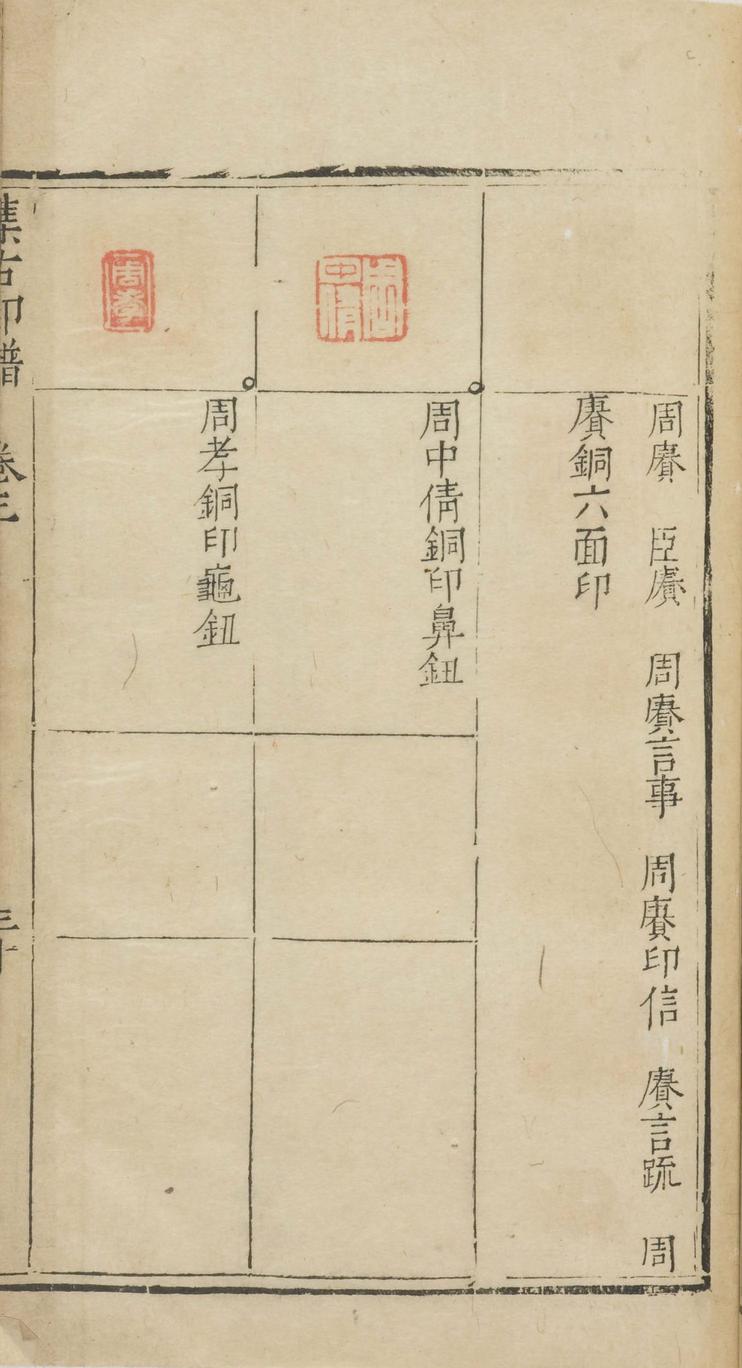 周賡　臣賡　周賡言事　周賡印信　賡言疏　周
賡銅六面印
周中倩銅印鼻鈕
周中倩
周孝銅印龜鈕
周孝
集古印譜　卷三　三十